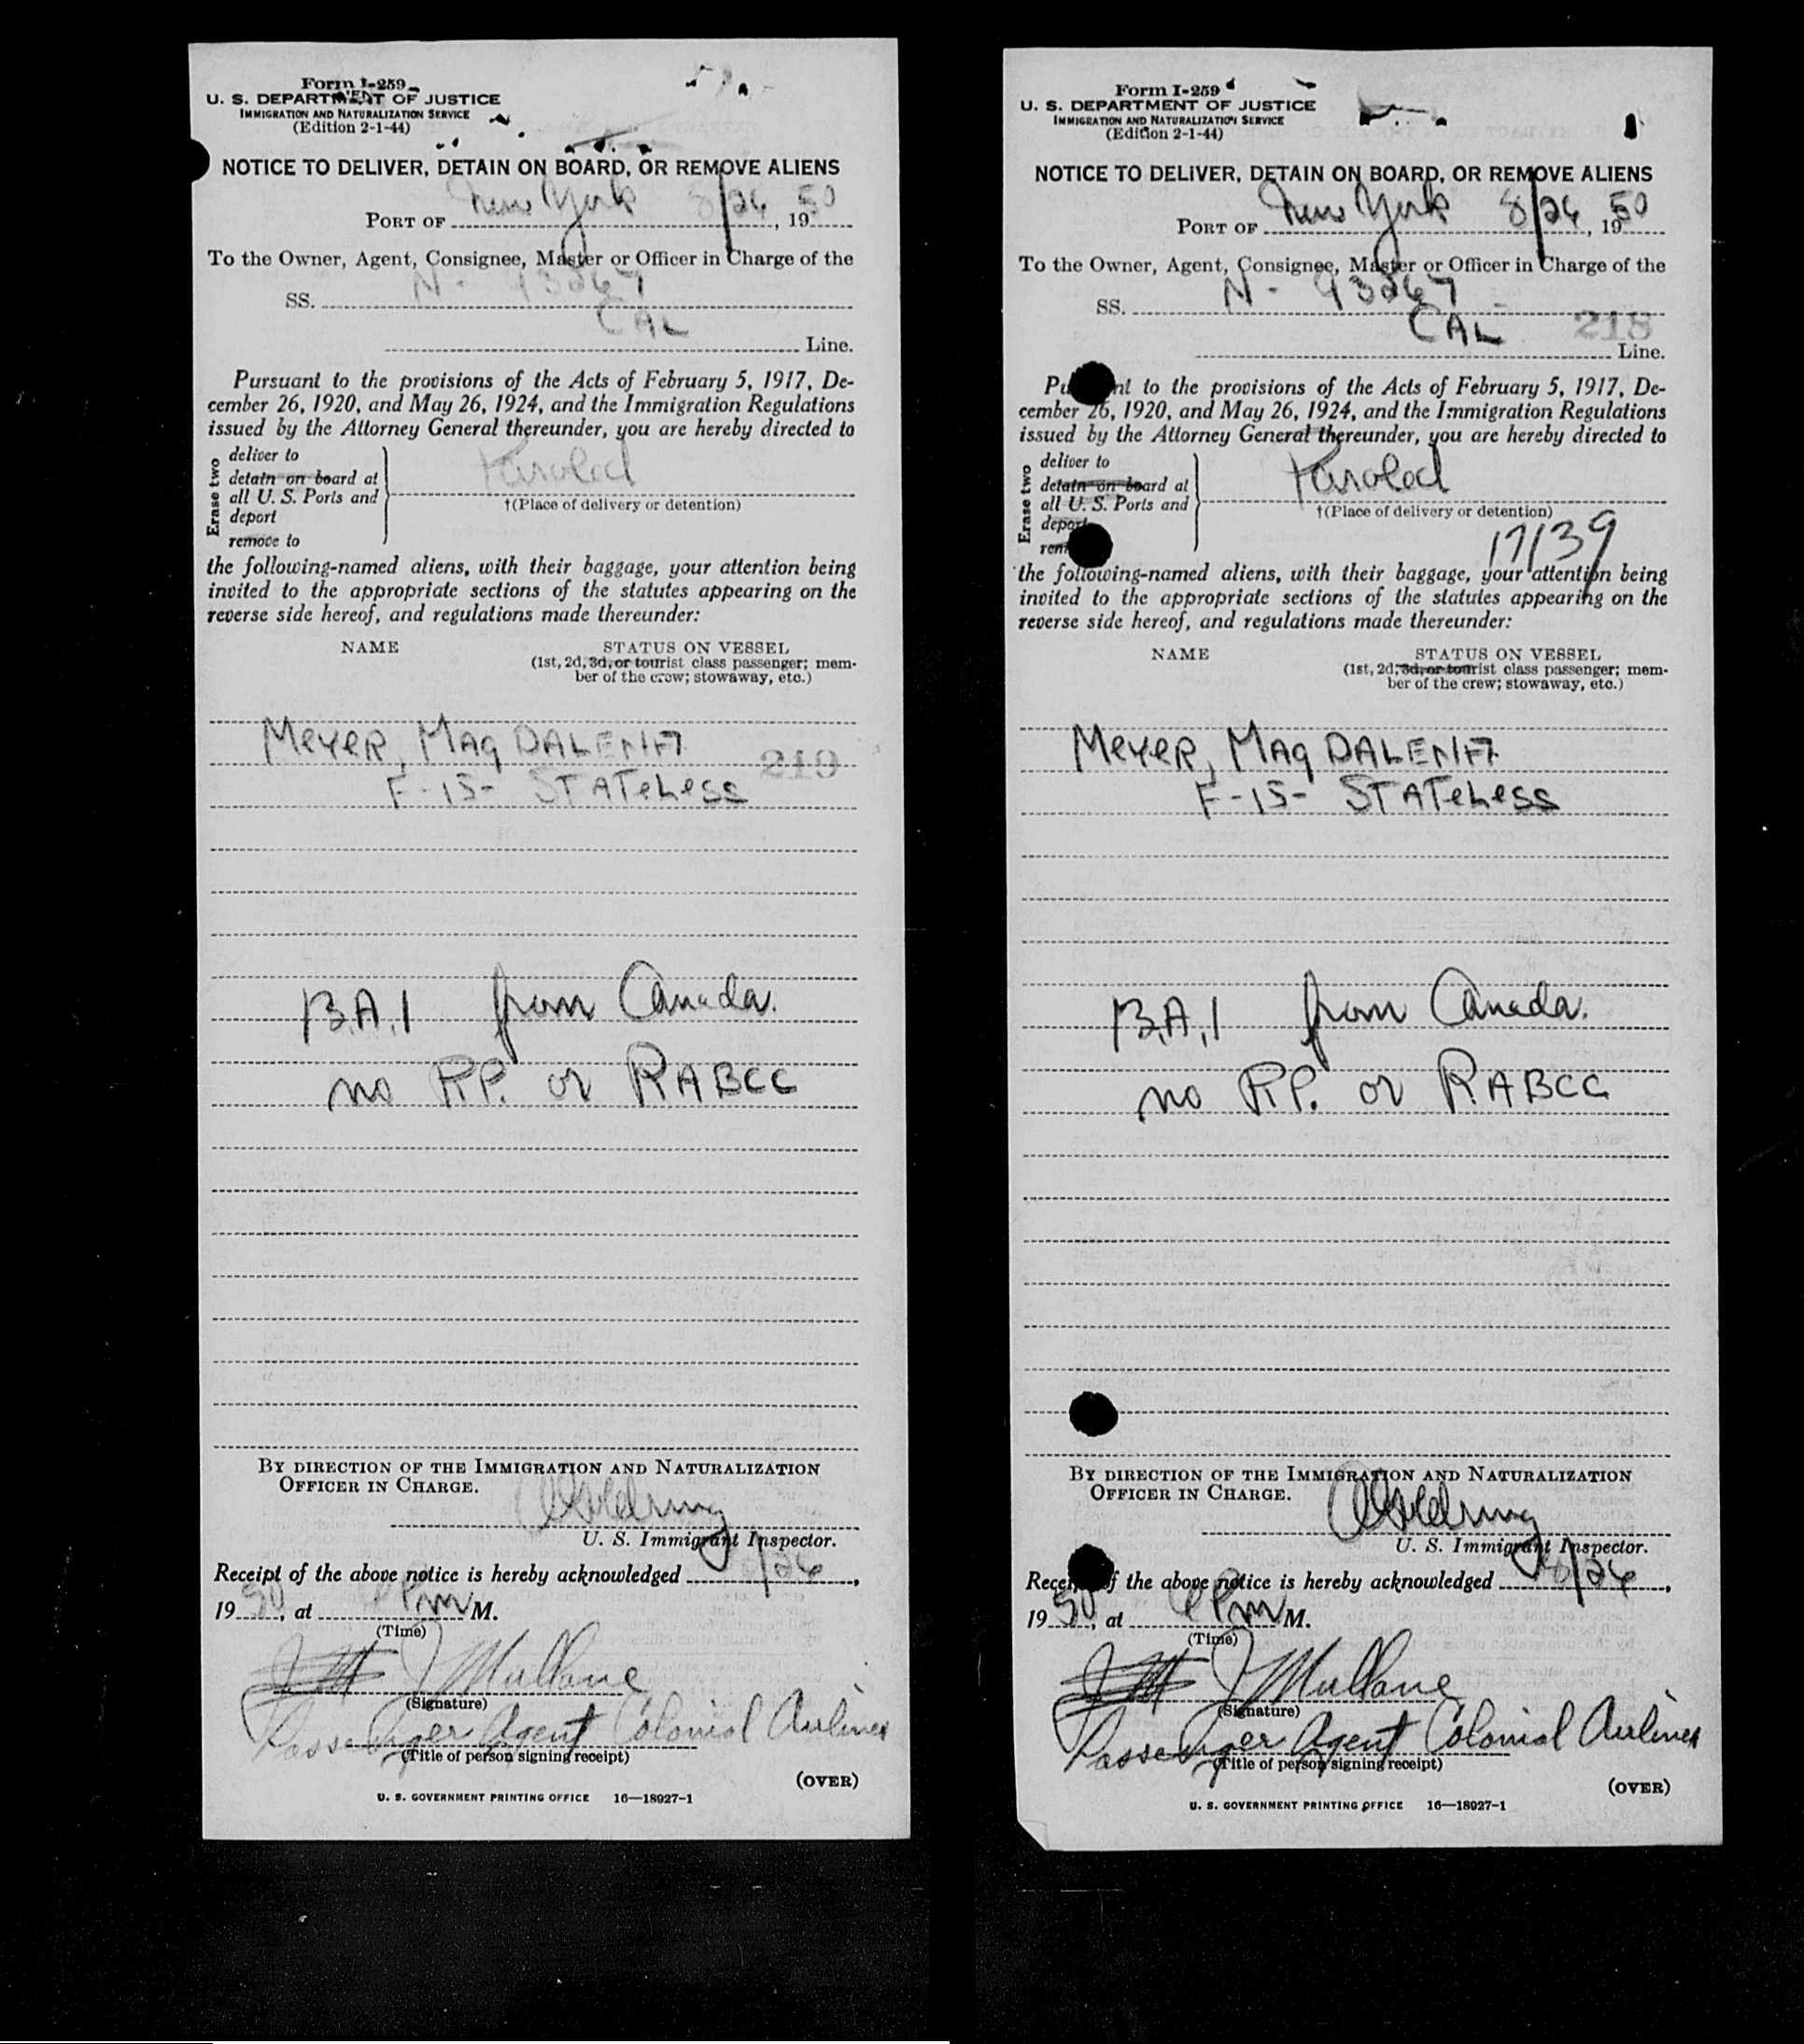 Form I-259
U. S. DEPARTMENT OF JUSTICE
IMMIGRATION AND NATURALIZATION SERVICE
(Edition 2-1-44)
NOTICE TO DELIVER, DETAIN ON BOARD, OR REMOVE ALIENS
PORT OF New York 8/26, 1950
To the Owner, Agent, Consignee, Master or Officer in Charge of the
SS. N - 93267
CAL
Line.
Pursuant to the provisions of the Acts of February 5, 1917, De-
cember 26, 1920, and May 26, 1924, and the Immigration Regulations
issued by the Attorney General thereunder, you are hereby directed to
Erase two
deliver to
detain on board at
all U. S. Ports and
deport
remove to
Paroled
†(Place of delivery or detention)
the following-named aliens, with their baggage, your attention being
invited to the appropriate sections of the statutes appearing on the
reverse side hereof, and regulations made thereunder:
NAME STATUS ON VESSEL
(1st, 2d, 3d, or tourist class passenger; mem-
ber of the crew; stowaway, etc.)
MEYER, MAgDALENA
219
F-15- STATeLeSS
B.A.1 from Canada.
no R.P. or RABCC
BY DIRECTION OF THE IMMIGRATION AND NATURALIZATION
OFFICER IN CHARGE.
U. S. Immigrant Inspector.
Receipt of the above notice is hereby acknowledged 8/26,
1950, at PmM.
(Time)
J Mullane
(Signature)
Passenger Agent Colonial Airlines
(Title of person signing receipt)
(OVER)
U. S. GOVERNMENT PRINTING OFFICE 16—18927-1
Form I-259
U. S. DEPARTMENT OF JUSTICE
IMMIGRATION AND NATURALIZATION SERVICE
(Edition 2-1-44)
NOTICE TO DELIVER, DETAIN ON BOARD, OR REMOVE ALIENS
PORT OF New York 8/26, 1950
To the Owner, Agent, Consignee, Master or Officer in Charge of the
SS. N - 93267
CAL 218
Line.
Pu nt to the provisions of the Acts of February 5, 1917, De-
cember 26, 1920, and May 26, 1924, and the Immigration Regulations
issued by the Attorney General thereunder, you are hereby directed to
Erase two
deliver to
detain on board at
all U. S. Ports and
deport
rem
Paroled
†(Place of delivery or detention)
17/39
the following-named aliens, with their baggage, your attention being
invited to the appropriate sections of the statutes appearing on the
reverse side hereof, and regulations made thereunder:
NAME STATUS ON VESSEL
(1st, 2d, 3d, or tourist class passenger; mem-
ber of the crew; stowaway, etc.)
MEYER, MAgDALENA
F-15- STATeLeSS
B.A.1 from Canada.
no R.P. or RABCC
BY DIRECTION OF THE IMMIGRATION AND NATURALIZATION
OFFICER IN CHARGE.
U. S. Immigrant Inspector.
Receipt of the above notice is hereby acknowledged 8/26,
1950, at PmM.
(Time)
J Mullane
(Signature)
Passenger Agent Colonial Airlines
(Title of person signing receipt)
(OVER)
U. S. GOVERNMENT PRINTING OFFICE 16—18927-1